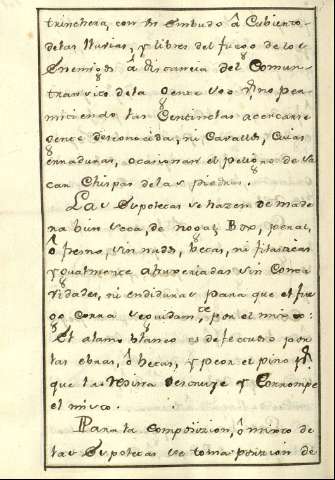 trinchera, con su Embudo â Cubierto
delas lluvias, y libres del fuego de los
Enemigos â distancia del Comun
transito dela Gente uso, y no per
mitiendo las Centinelas acercarse
gente desconocida, ni Cavallos, Cuias
erraduras, ocasionan el peligro de sa
can Chispas delas piedras.
Las Espoletas se hazen de made
ra bien seca, de nogal, Box, peral,
ô fresno, sin nudos, becas, ni filasticas
y igualmente abujereadas sin Conca
vidades, ni endiduras para que el fue
go corra seguidamte por el mixto:
El alamo blanco es defectuoso por
las ebras, ô becas, y peor el pino pr
que la Resina destruye y Corrompe
el mixto.
Para la Composizion, ô mixto de
las Espoletas se toma porzion de